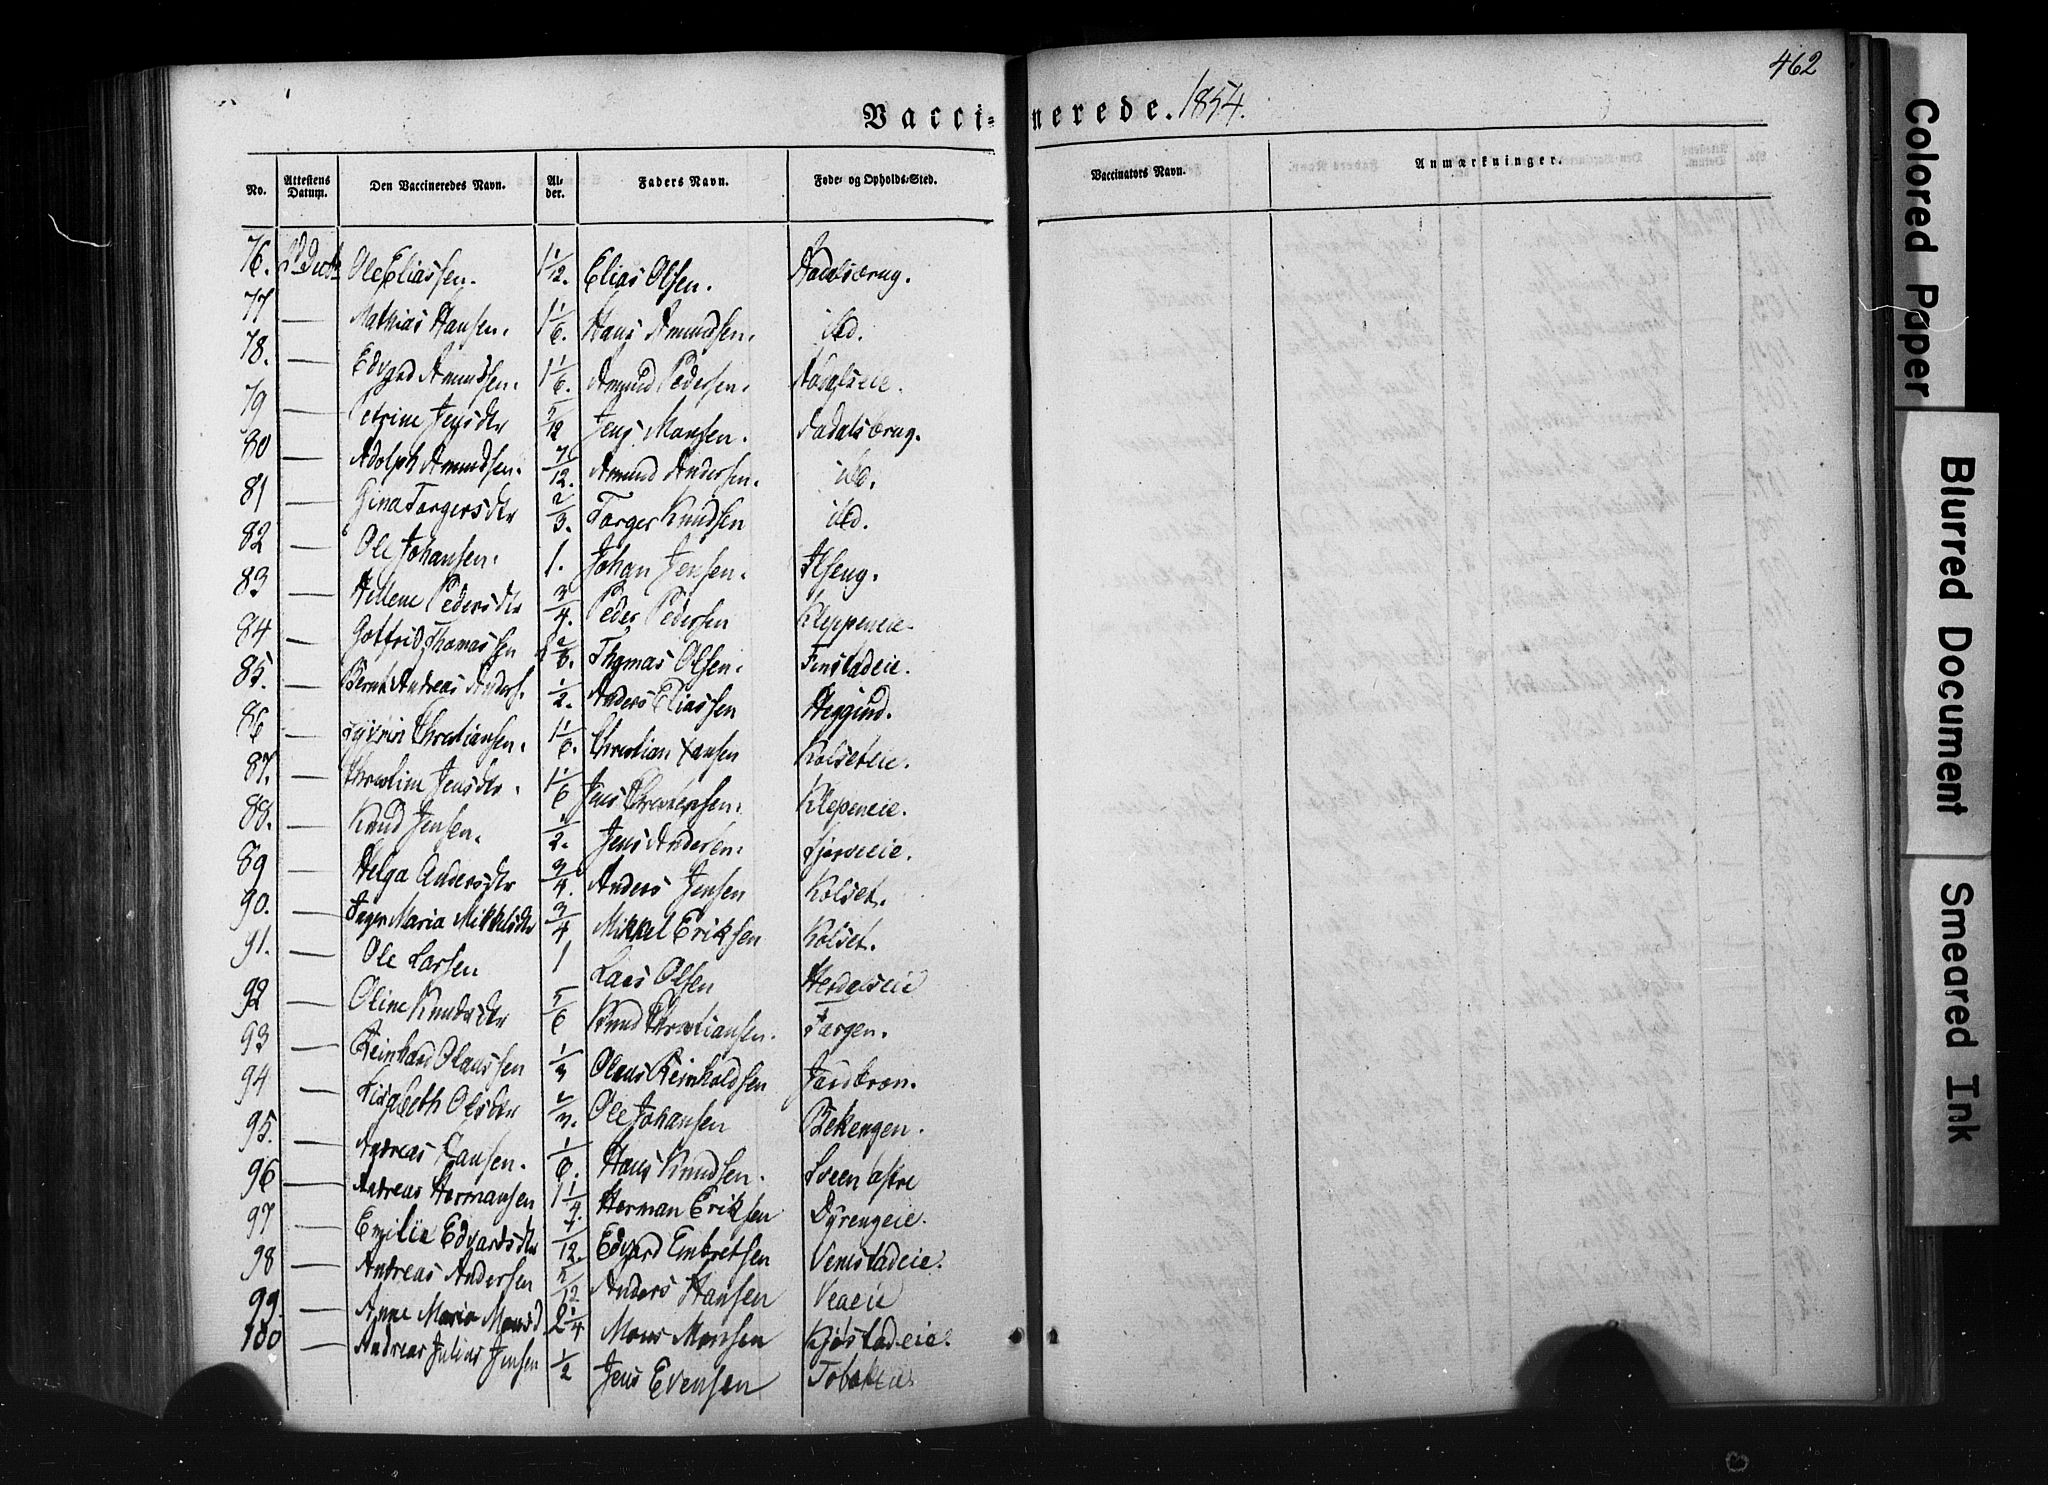 462
Vacci= nerede. 1854.
No. Attestens Datum. Den Vaccineredes Navn. Al- der. Faders Navn. Føde- og Opholds-Sted. Vaccinators Navn. Anmærkninger.
76. Ole Eliassen. 1 1/12. Elias Olsen. Aadalsbrug.
77 — Mathias Hansen. 1 1/6. Hans Amundsen. ibid.
78. — Edvard Amundsen. 1 1/6. Amund Pedersen. Aadalseie.
79 — Petrine Jensdtr 5/12 Jens Monsen. Aadalsbrug.
80 — Adolph Amundsen. 7/12. Amund Andersen. ibid.
81 — Gina Torgersdtr 2/3. Torger Knudsen ibid.
82 — Ole Johansen. 1. Johan Jensen. Ilseng.
83 — Hellene Pedersdtr 3/4. Peder Pedersen Kleppeneie.
84 — Gotfrid Thomassen Thomas Olsen. Finstadeie.
85. — Bernt Andreas Anders. 1/2. Anders Eliassen
86 — Christiansen. 1 1/6. Christian Hansen Kolseteie.
87. — Christine Jensdtr. 1 1/6 Jens Christensen. Klepeneie.
88. — Knud Jensen. 1/2. Jens Andersen.
89 — Helga Andersdtr 3/4. Anders Jensen Kolset.
90. — Inger Maria Mikkelsdtr 3/4 Mikkel Eriksen Kolset.
91. — Ole Larsen 1 Lars Olsen
92 — Oline Knudsdtr 5/6 Knud Christiansen. Fargen.
93 — Reinhard Olaussen 1/3 Olaus Reinholdsen
94 — Lisabeth Olsdtr 2/3. Ole Johansen Bekengen.
95. — Andreas Hansen. 1/6. Hans Knudsen. Sveen østre
96 — Andreas Hermansen 1 1/4. Herman Eriksen Dyrengeie.
97 — Emilie Edvardsdtr 7/12. Edvard Embretsen Vemstadeie.
98 — Andreas Andersen 5/12 Anders Hansen
99. — Anne Maria Monsd 2 1/4 Mons Monsen Kjøstadeie.
100 — Andreas Julius Jensen 1/2 Jens Evensen
Colored Paper
Blurred Document
Smeared Ink